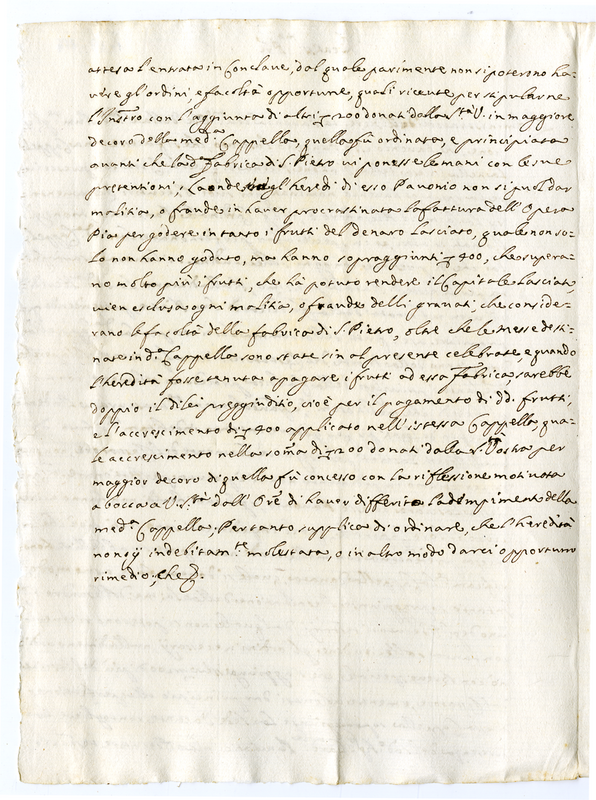 attesa l'entrata in Conclave, dal quale parimente non si poterono ha-
vere gl'ordini, e facoltà opportune, quali ricevute per stipularne
l'Instro con l'aggiunta di altri 200 donati dalla Stà V. in maggiore
decoro della med.ma Cappella, quella fù ordinata, e principiata
avanti che la d. Fabrica di S. Pietro vi ponesse le mani con le sue
pretentioni, Laonde gl'heredi di esso Pavonio non si puol dar
malitia, o fraude in haver procrastinata la fattura dell'Opera
Pia per godere in tanto i frutti del denaro lasciato, quale non so-
lo non hanno goduto, ma hanno sopraggiunti 400, che supera-
no molto più i frutti, che hà potuto rendere il Capitale lasciato
vien esclusa ogni malitia, o fraude delli gravati che conside-
rano le facoltà della fabrica di S. Pietro, oltre che le messe desti-
nate in d.a Cappella sono state sin al presente celebrate, e quando
l'heredità fosse tenuta a pagare i frutti ad essa Fabrica, sarebbe
doppio il di lei preggiuditio, cioè per il pagamento di dd. frutti,
e l'accrescimento di 400 applicato nell'istessa Cappella, qua-
le accrescimento nella soma di 200 donati dalla S. Vostra per
maggior decoro di quella fù concesso con la riflessione motivata
a bocca a V. S.tà dall'Ore di haver differito l'adempimento della
med.a Cappella, Pertanto supplica di ordinare, che l'heredità
non indebitam.te molestata, o in altro modo darci opportuno
rimedio, che